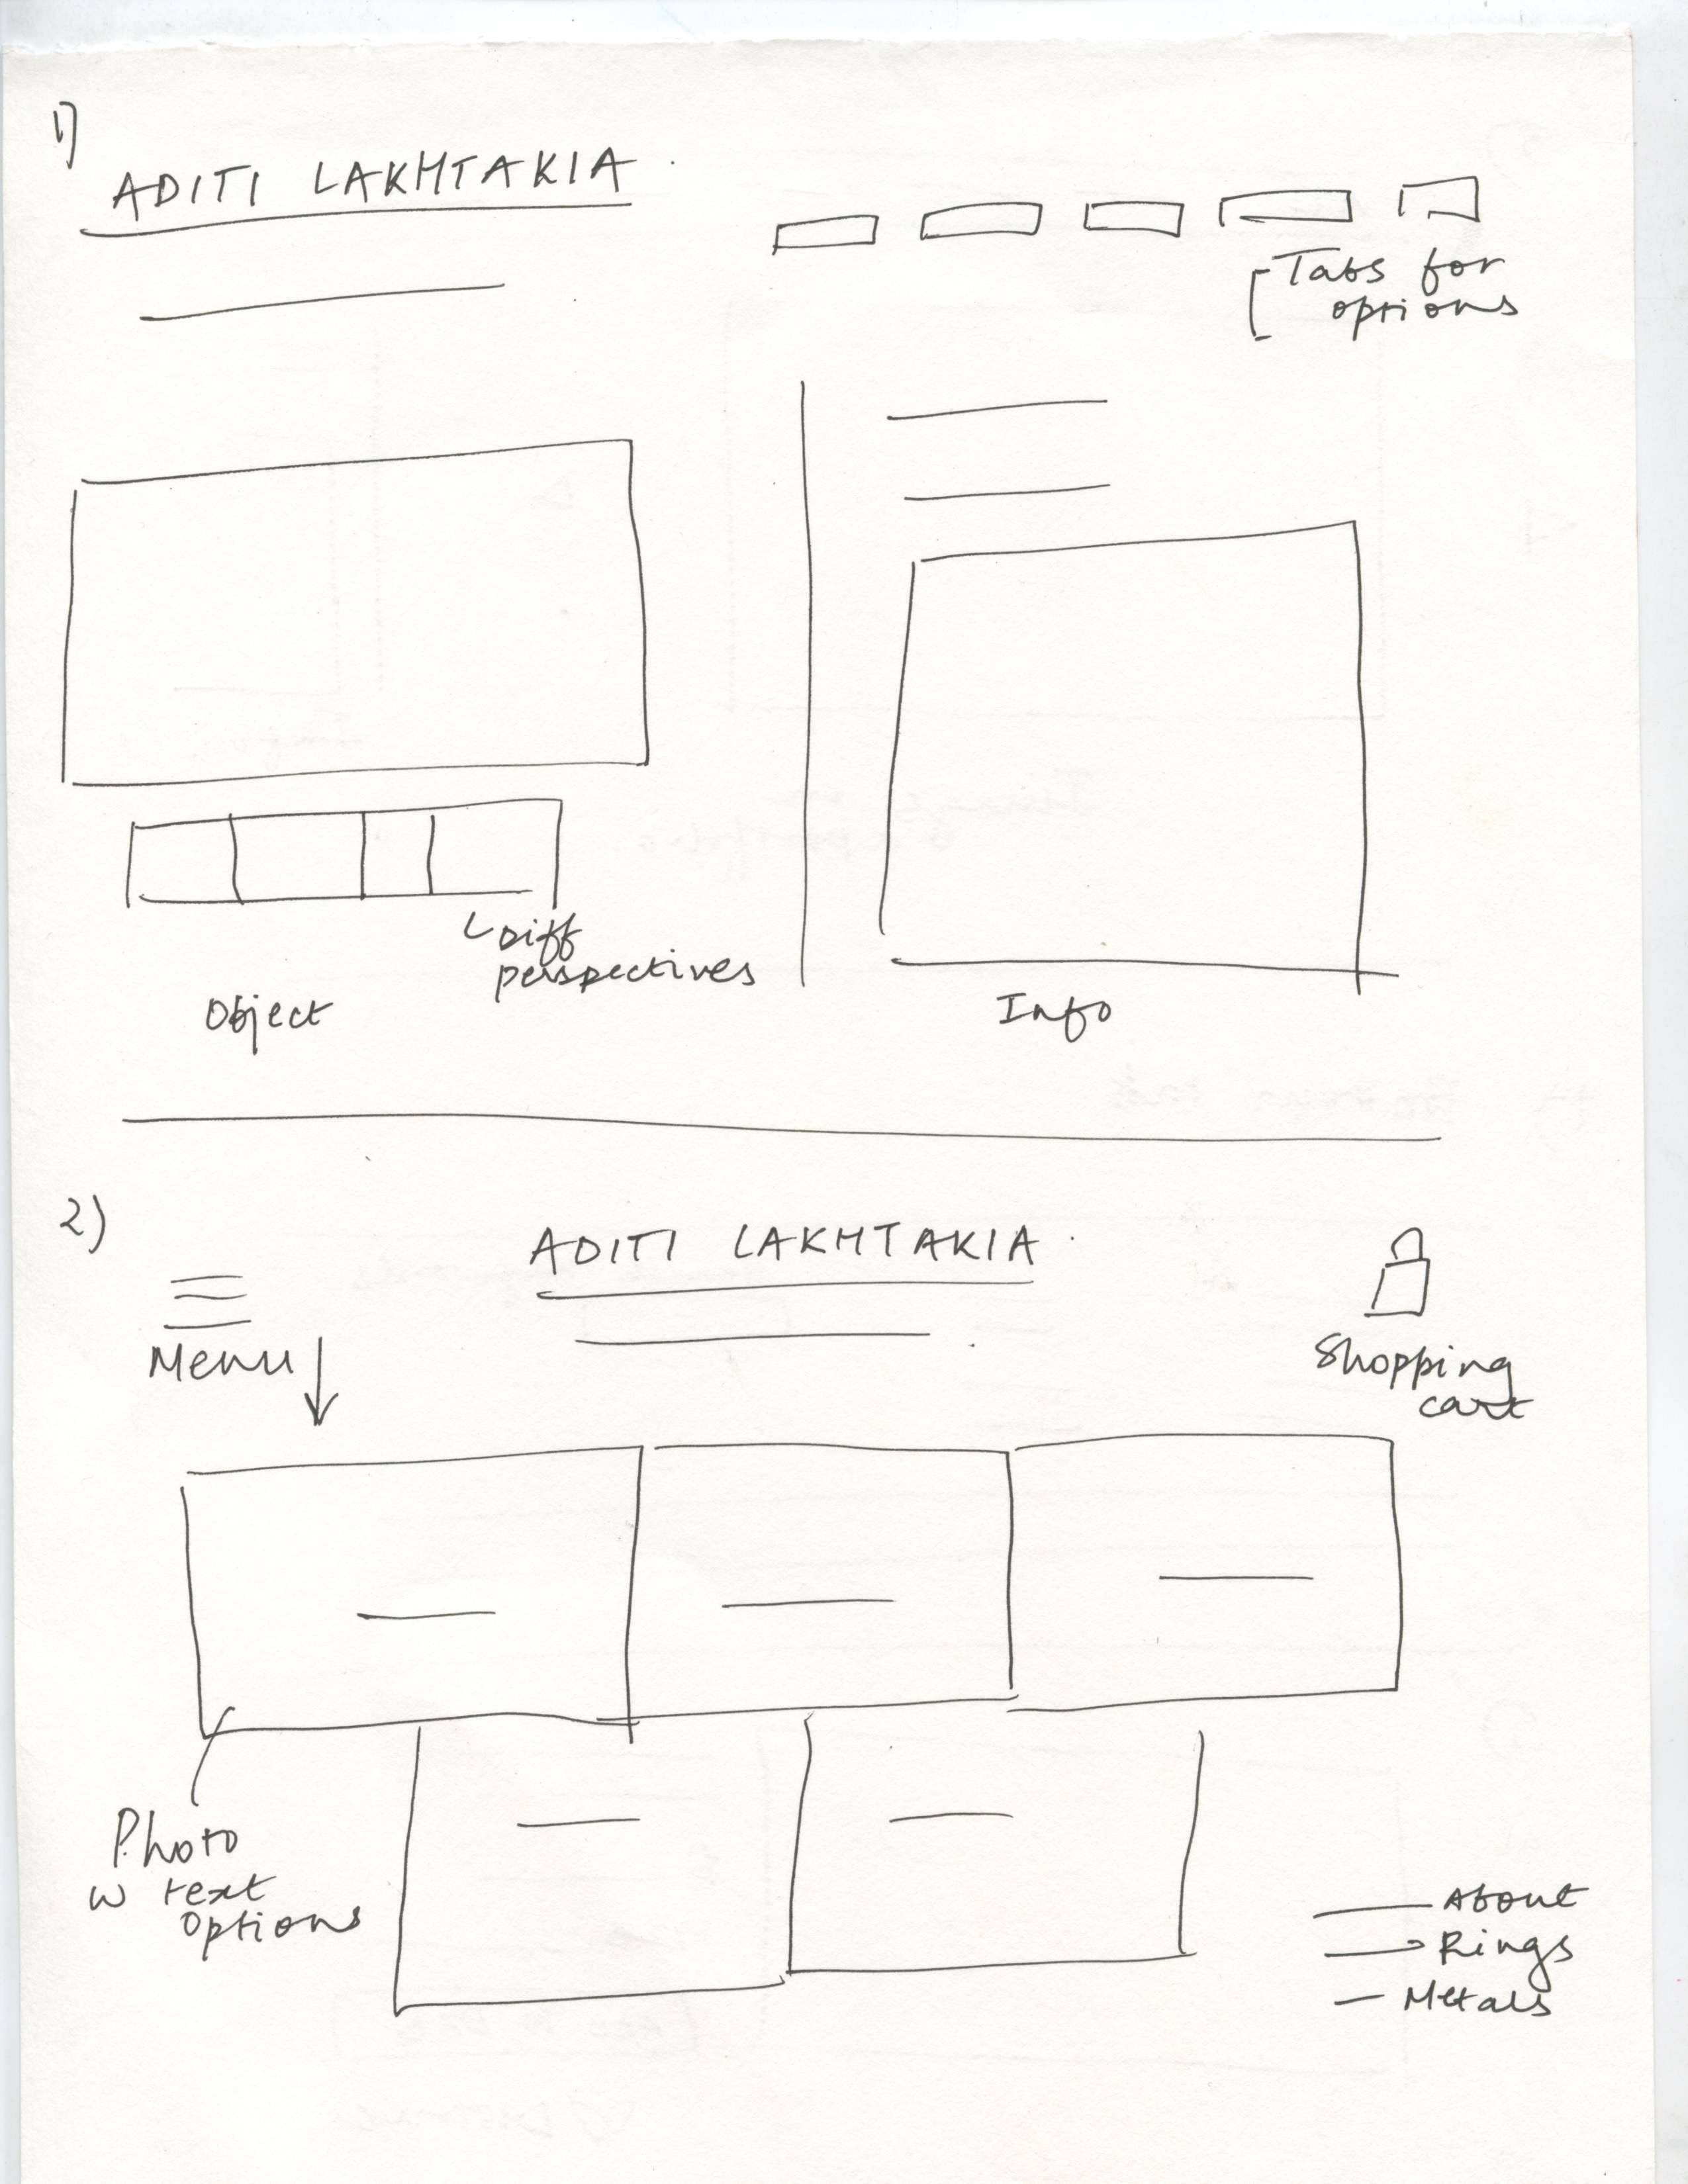 1)
ADITI LAKHTAKIA
Tabs for
options
Diff
perspectives
Object
Info
2)
ADITI LAKHTAKIA
Menu
Shopping
cart
Photo
w text
options
About
Rings
Metals